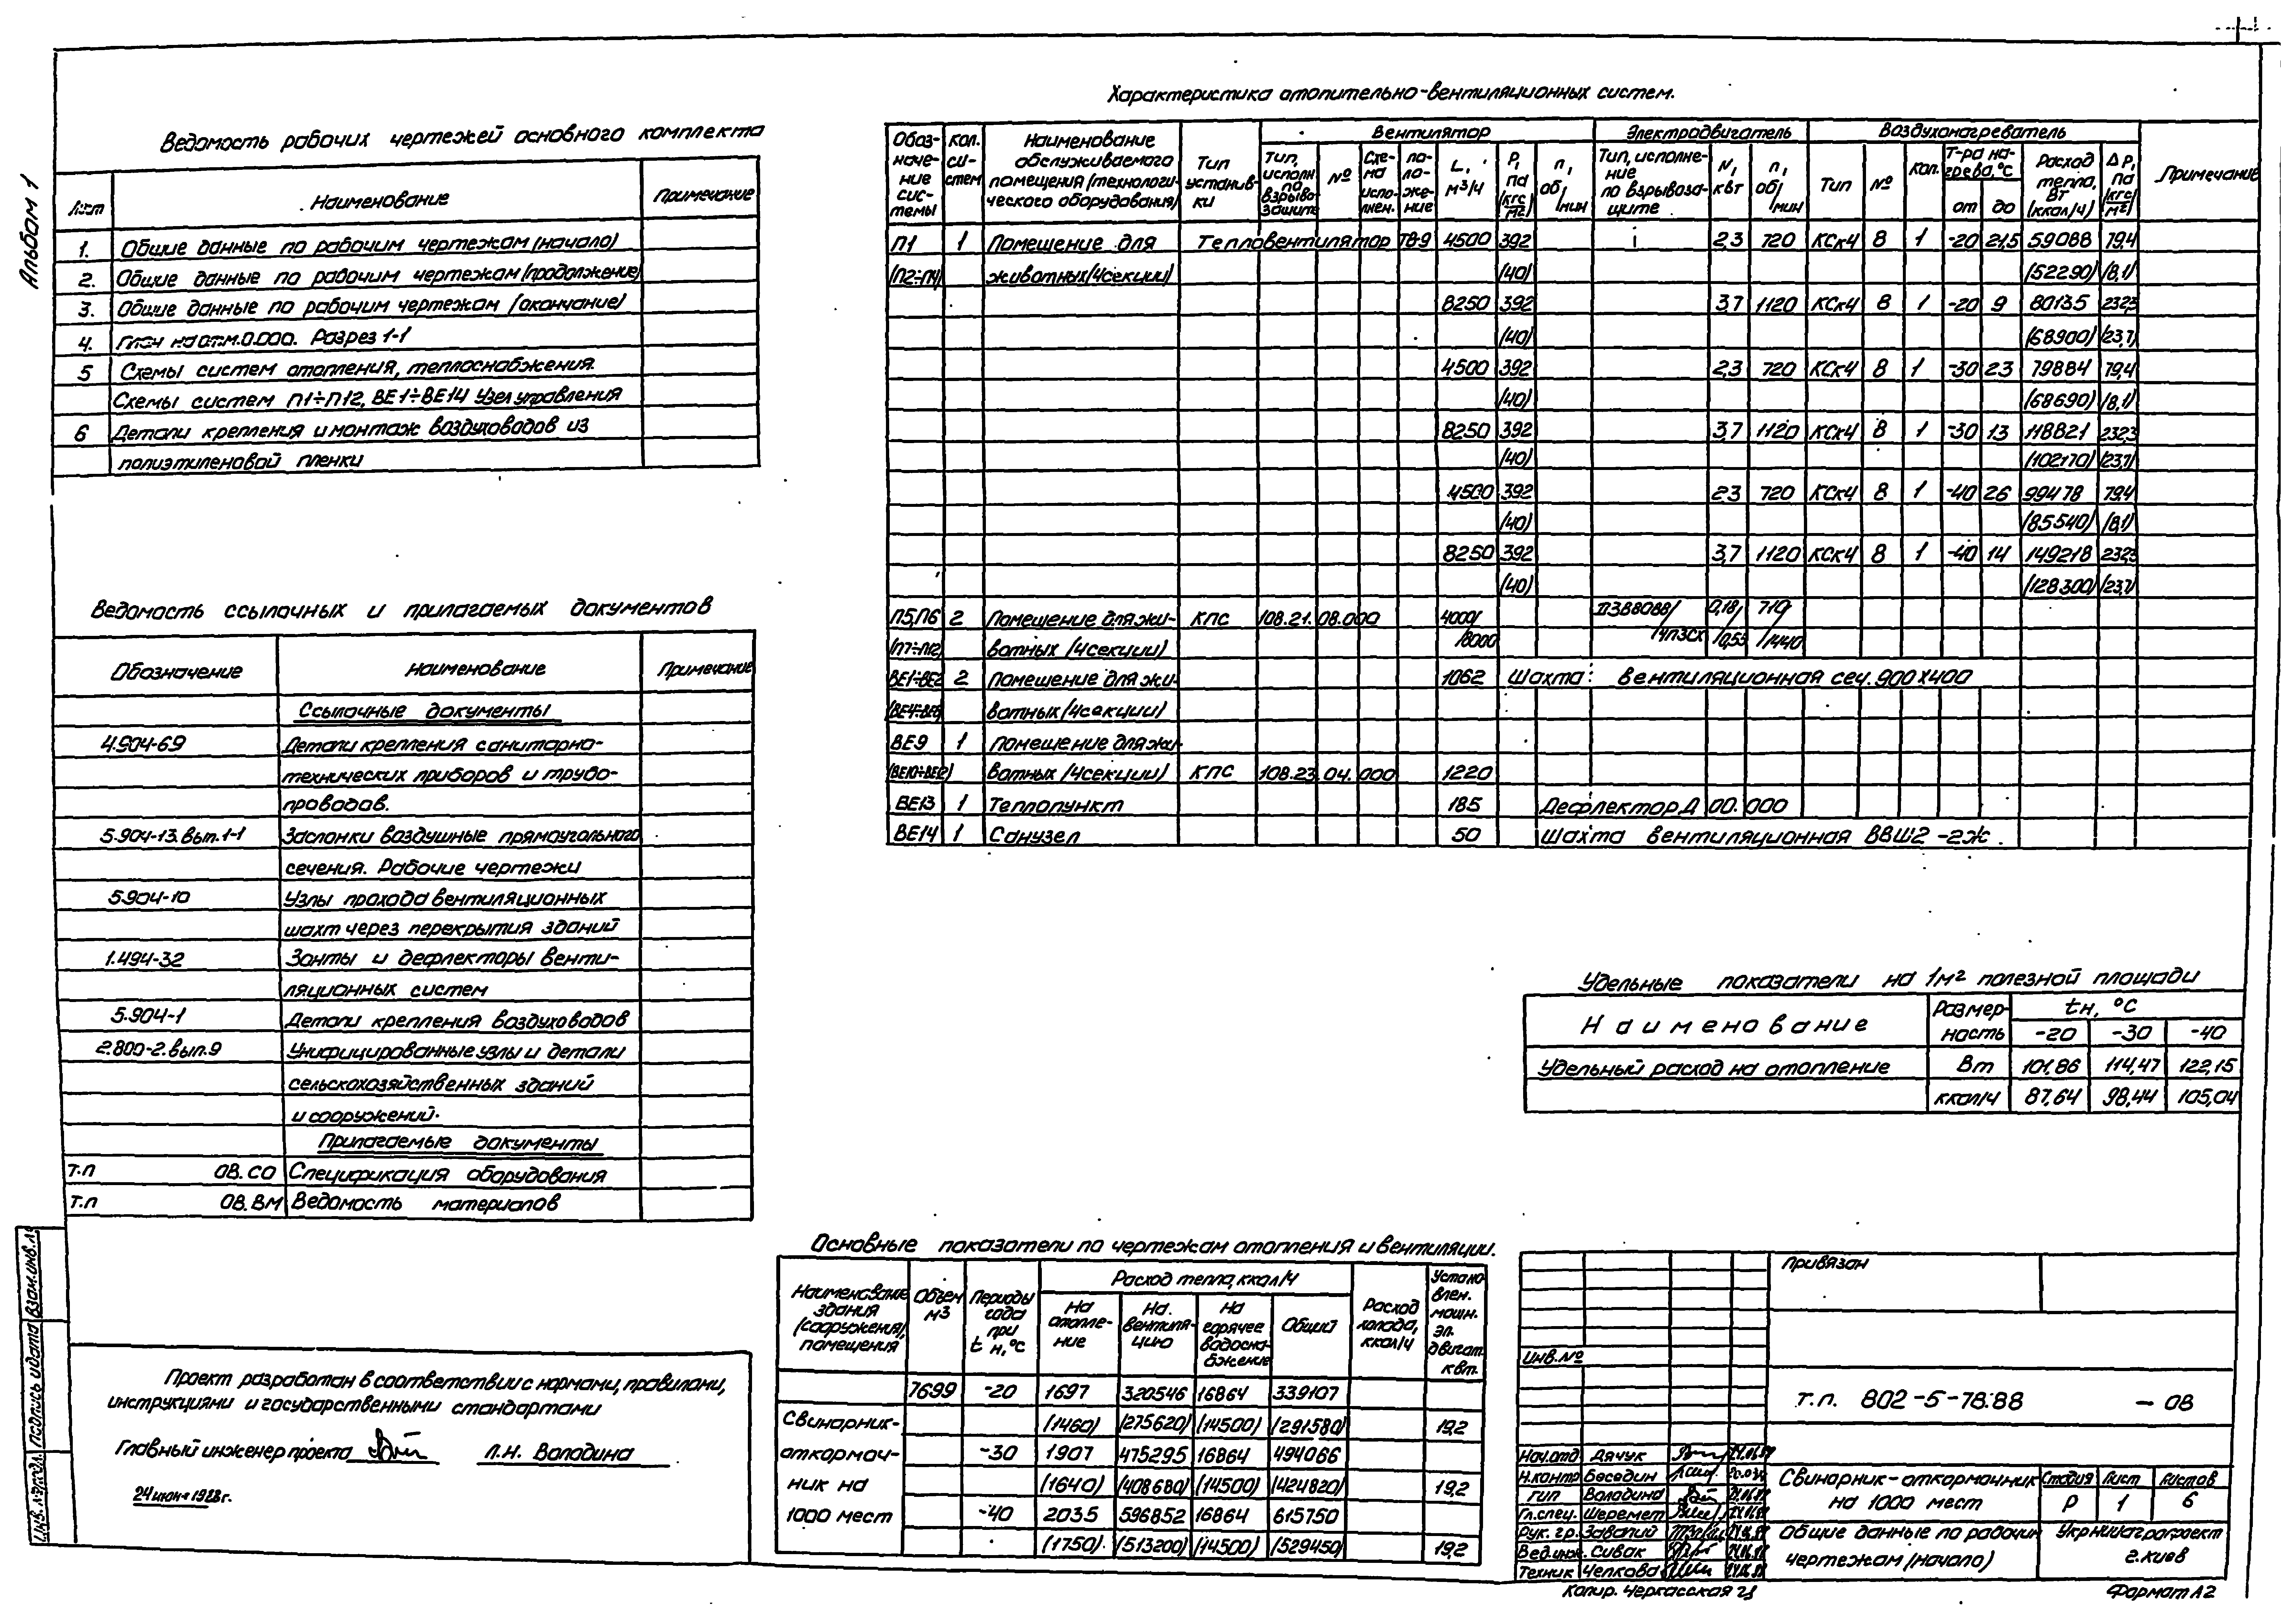 Альбом 1
Ведомость рабочих чертежей основного комплекта
Лист Наименование Примечание
1. Общие данные по рабочим чертежам (начало)
2. Общие данные по рабочим чертежам (продолжение)
3. Общие данные по рабочим чертежам (окончание)
4. План на отм.0.000. Разрез 1-1
5 Схемы систем отопления, теплоснабжения.
Схемы систем П1÷П12, ВЕ1÷ВЕ14 Узел управления
6 Детали крепления и монтаж воздуховодов из
полиэтиленовой пленки
Ведомость ссылочных и прилагаемых документов
Обозначение Наименование Примечание
Ссылочные документы
4.904-69 Детали крепления санитарно-
технических приборов и трубо-
проводов.
5.904-13.вып.1-1 Заслонки воздушные прямоугольного
сечения. Рабочие чертежи
5.904-10 Узлы прохода вентиляционных
шахт через перекрытия зданий
1.494-32 Зонты и дефлекторы венти-
ляционных систем
5.904-1 Детали крепления воздуховодов
2.800-2.вып.9 Унифицированные узлы и детали
сельскохозяйственных зданий
и сооружений.
Прилагаемые документы
т.п ОВ.СО Спецификация оборудования
т.п ОВ.ВМ Ведомость материалов
Проект разработан в соответствии с нормами, правилами,
инструкциями и государственными стандартами
Главный инженер проекта Л.Н. Володина
24 июня 1988г.
Инв.№подл. Подпись и дата Взам.инв.№
Характеристика отопительно-вентиляционных систем.
Обоз-
наче-
ние
сис-
темы
Кол.
си-
стем
Наименование
обслуживаемого
помещения (технологи-
ческого оборудования)
Тип
установ-
ки
Вентилятор
Тип,
исполн
по
взрыво
защите
№
Схе-
ма
испо-
лнен.
по-
ло-
же-
ние
L,
м³/ч
Р,
па
(кгс/м²)
п,
об/мин
Электродвигатель
Тип, исполне-
ние
по взрывоза-
щите
N,
квт
п,
об/мин
Воздухонагреватель
Тип
№
Кол.
Т-ра на-
грева,°С
от до
Расход
тепла,
Вт
(ккал/ч)
ΔР,
па
(кгс/м²)
Примечание
П1 1 Помещение для Тепловентилятор ТВ-9 4500 392 2,3 720 КСк4 8 1 -20 21,5 59088 79,4
(П2÷П4) животных (4секции) (40) (52290) (8,1)
8250 392 3,7 1120 КСк4 8 1 -20 9 80135 232,3
(40) (68900) (23,7)
4500 392 2,3 720 КСк4 8 1 -30 23 79884 79,4
(40) (68690) (8,1)
8250 392 3,7 1120 КСк4 8 1 -30 13 118821 232,3
(40) (102170) (23,7)
4500 392 2,3 720 КСк4 8 1 -40 26 99478 79,4
(40) (85540) (8,1)
8250 392 3,7 1120 КСк4 8 1 -40 14 149218 232,3
(40) (128300) (23,7)
П5,П6 2 Помещение для жи- КПС 108.21.08.000 4000/ 0,18/ 710/
(П7÷П12) вотных (4секции) /8000 /0,55 /1440
ВЕ1÷ВЕ2 2 Помещение для жи- 1062 Шахта: вентиляционная сеч.900х400
вотных (4секции)
ВЕ9 1 Помещение для жи-
(ВЕ10÷ВЕ12) вотных (4секции) КПС 108.23.04.000 1220
ВЕ13 1 Теплопункт 185 Дефлектор Д 00.000
ВЕ14 1 Санузел 50 Шахта вентиляционная ВВШ2-2Ж.
Удельные показатели на 1м² полезной площади
Наименование Размер-
ность
tн, °С
-20 -30 -40
Удельный расход на отопление Вт 101,86 114,47 122,15
ккал/ч 87,64 98,44 105,04
Основные показатели по чертежам отопления и вентиляции.
Наименование
здания
(сооружения),
помещения
Объем
м3
Периоды
года
при
t н,°С
Расход тепла, ккал/ч
На
отопле-
ние
На
вентиля-
цию
На
горячее
водосна-
бжение
Общий
Расход
холода,
ккал/ч
Устано
влен.
мощн.
эл.
двигат.
квт.
7699 -20 1697 320546 16864 339107
Свинарник- (1460) (275620) (14500) (291580) 19,2
откормоч- -30 1907 475295 16864 494066
ник на (1640) (408680) (14500) (424820) 19,2
1000 мест -40 2035 596852 16864 615750
(1750) (513200) (14500) (529450) 19,2
Привязан
Инв.№
т.п. 802-5-78.88 – ОВ
Нач.отд Дячук
Н.контр Беседин
ГИП Володина
Гл.спец. Шеремет
Рук.гр. Завалий
Вед.инж. Сивак
Техник Чепкова
Свинарник-откормочник
на 1000 мест
Стадия Лист Листов
Р 1 6
Общие данные по рабочим
чертежам (начало)
Укрниигропроект
г.Киев
Копир. Черкасская
Формат А2